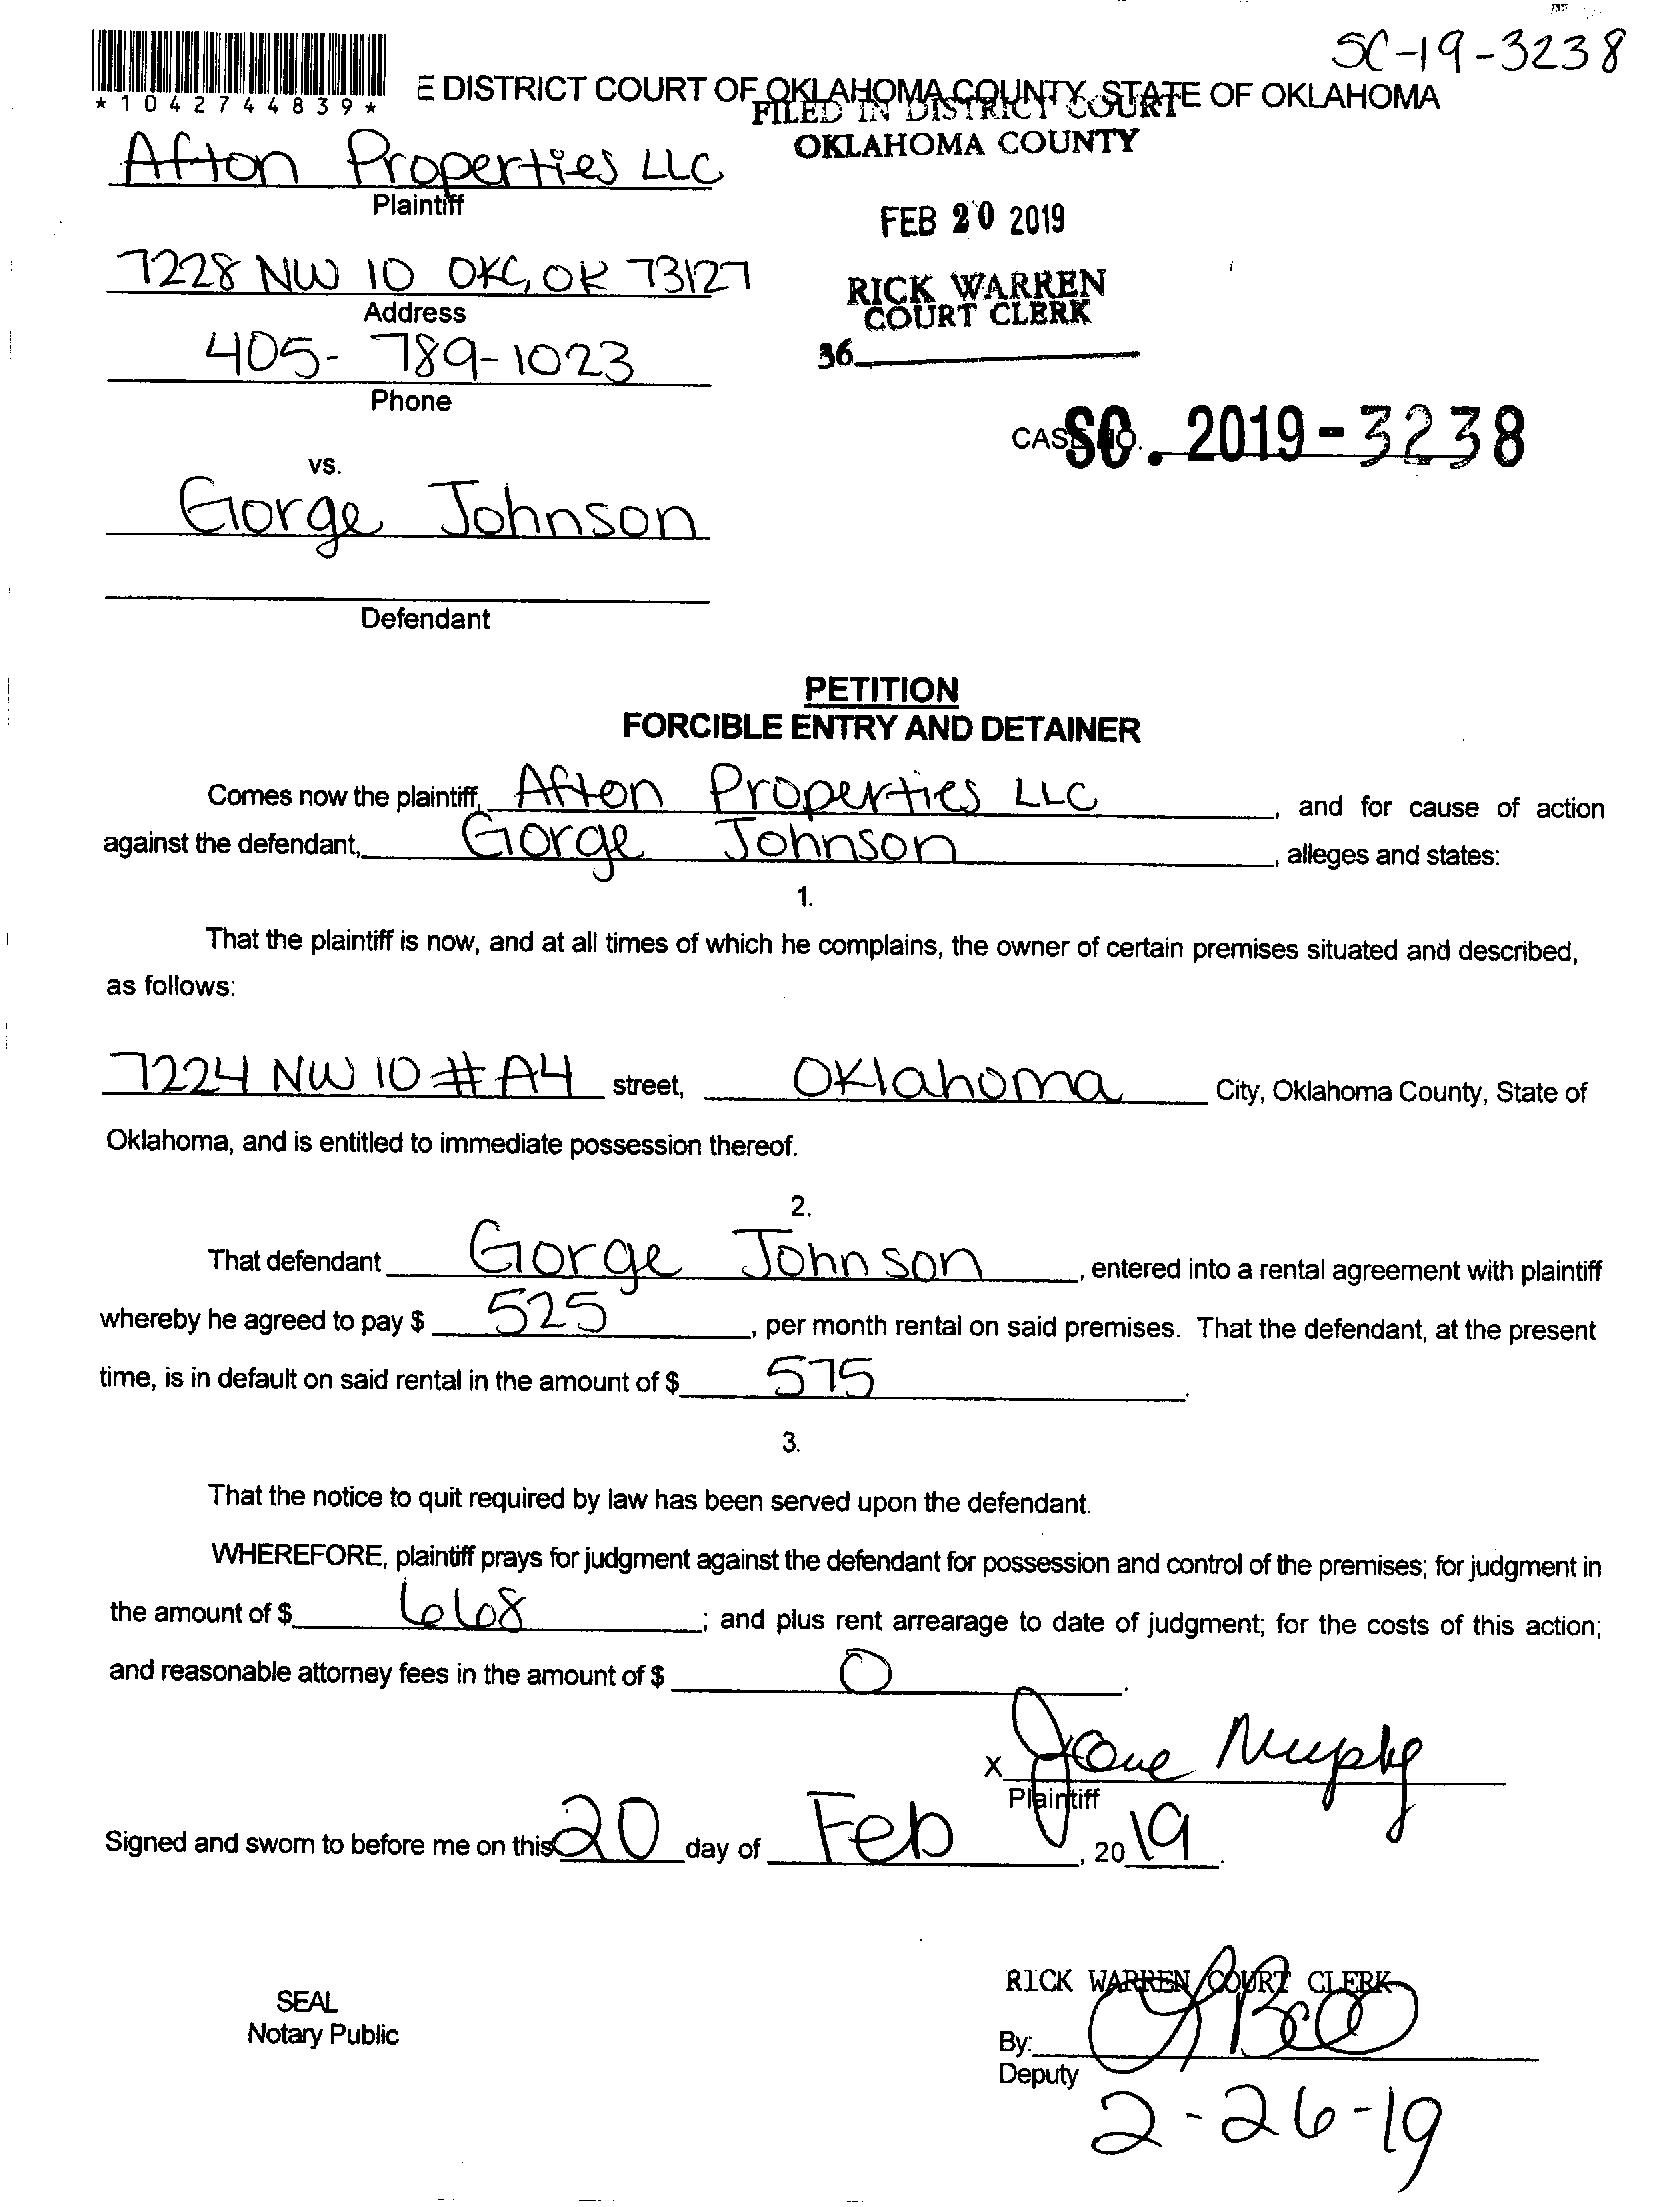 SC-19-3238
*1042744839*
E DISTRICT COURT OF OKLAHOMA COUNTY, STATE OF OKLAHOMA
FILED IN DISTRICT COURT
OKLAHOMA COUNTY
Afton Properties LLC
Plaintiff
FEB 20 2019
7228 NW 10 OKC, OK 73127
Address
RICK WARREN
COURT CLERK
405-789-1023
Phone
36
CASE NO. SC. 2019-3238
vs.
Gorge Johnson
Defendant
PETITION
FORCIBLE ENTRY AND DETAINER
Comes now the plaintiff, Afton Properties LLC, and for cause of action
against the defendant, Gorge Johnson, alleges and states:
1.
That the plaintiff is now, and at all times of which he complains, the owner of certain premises situated and described,
as follows:
7224 NW 10 # A4 street, Oklahoma City, Oklahoma County, State of
Oklahoma, and is entitled to immediate possession thereof.
2.
That defendant Gorge Johnson, entered into a rental agreement with plaintiff
whereby he agreed to pay $ 525, per month rental on said premises. That the defendant, at the present
time, is in default on said rental in the amount of $ 575.
3.
That the notice to quit required by law has been served upon the defendant.
WHEREFORE, plaintiff prays for judgment against the defendant for possession and control of the premises; for judgment in
the amount of $ 668; and plus rent arrearage to date of judgment; for the costs of this action;
and reasonable attorney fees in the amount of $ 0.
x Jane Murphy
Plaintiff
Signed and sworn to before me on this 20 day of Feb, 2019.
RICK WARREN COURT CLERK
SEAL
Notary Public
By:
Deputy
2-26-19